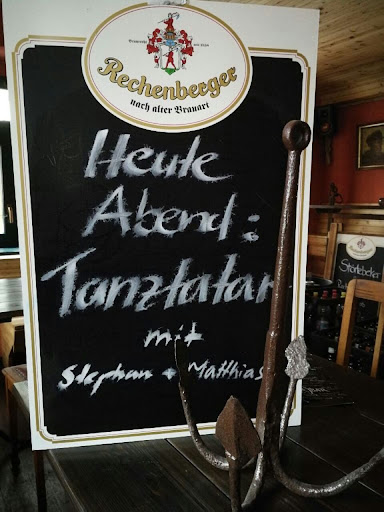 Rechenberger
nach alter Brauart
Heute
Abend:
Tanztatar
mit
Stephan + Matthias
Störtebeker